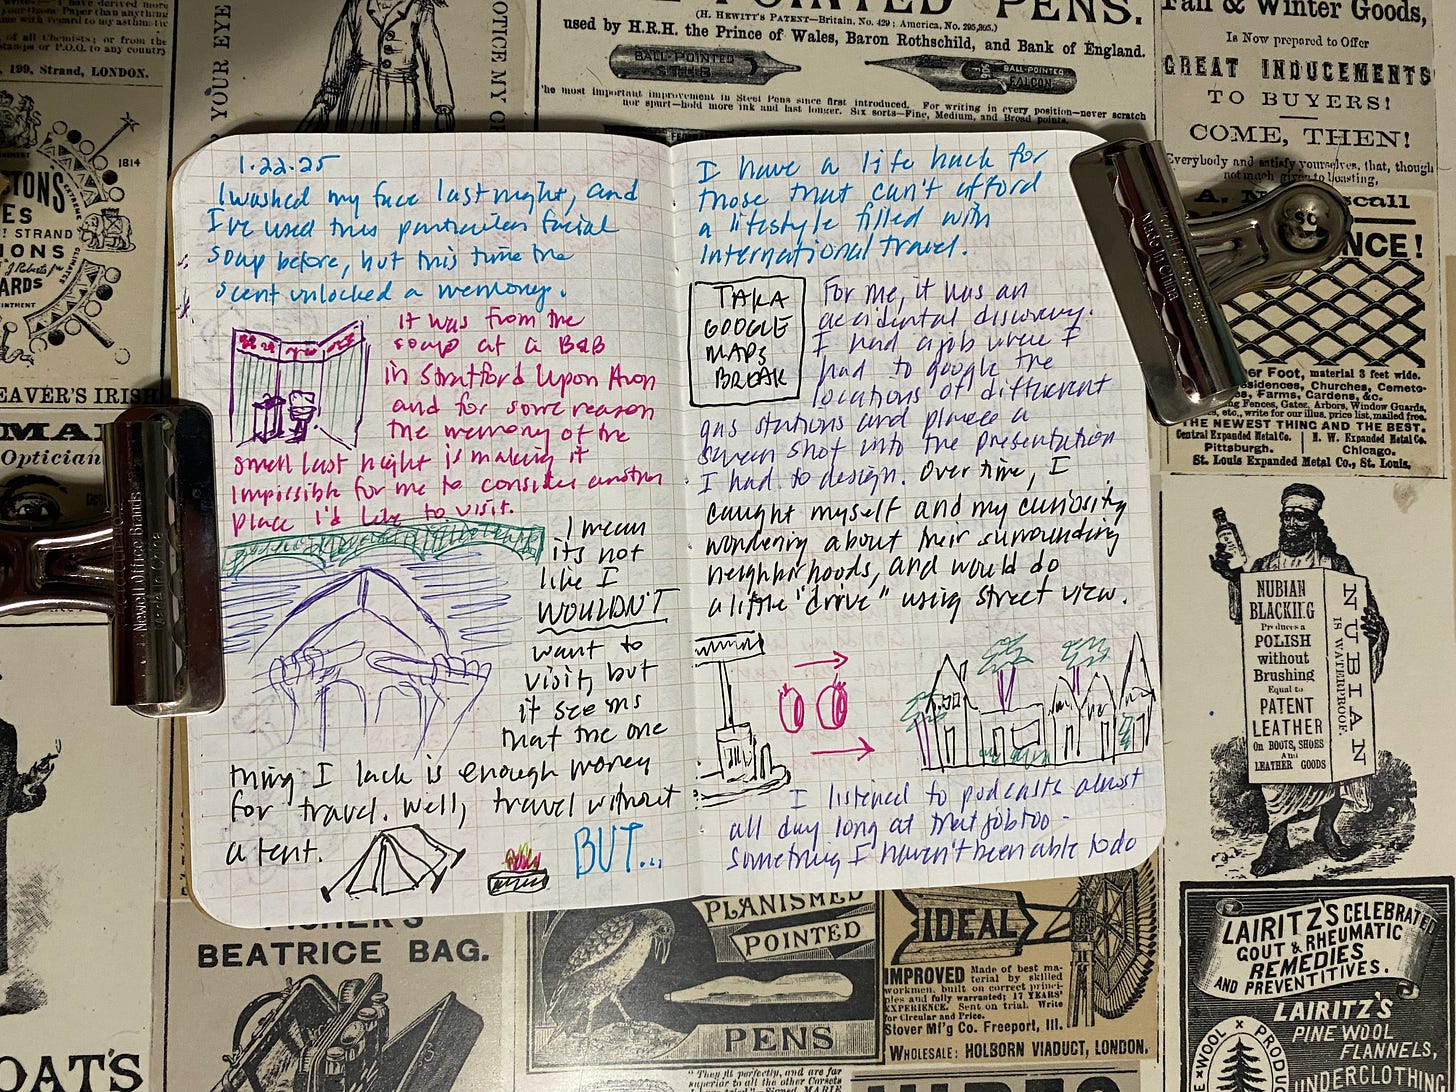 1.22.25
I washed my face last night, and
I've used this particular facial
soap before, but this time the
scent unlocked a memory.
it was from the
soap at a B&B
in Stratford Upon Avon
and for some reason
the memory of the
smell last night is making it
impossible for me to consider another
place I'd like to visit.
I mean
its not
like I
WOULDN'T
want to
visit, but
it seems
that the one
thing I lack is enough money
for travel. Well, travel without
a tent.
BUT...
I have a life hack for
those that can't afford
a lifestyle filled with
International travel.
TAKA
GOOGLE
MAPS
BREAK
For me, it was an
accidental discovery.
I had a job where I
had to google the
locations of different
gas stations and place a
screen shot into the presentation
I had to design. Over time, I
caught myself and my curiosity
wondering about their surrounding
neighborhoods, and would do
a little "drive" using street view.
I listened to podcasts almost
all day long at that job too -
something I haven't been able to do
of all Chemists; or from the
stamps or P.O.O. to any country
199, Strand, LONDON.
YOUR EYE
NOTICE MY
1814
STRAND
BEAVER'S IRISH
Optician
PENS.
(H. HEWITT'S PATENT—Britain, No. 429; America, No. 295,395.)
used by H.R.H. the Prince of Wales, Baron Rothschild, and Bank of England.
BALL-POINTED
BALL-POINTED
FALCON
The most important improvement in Steel Pens since first introduced. For writing in every position—never scratch
nor spurt—hold more ink and last longer. Six sorts—Fine, Medium, and Broad points.
Fall & Winter Goods,
Is Now prepared to Offer
GREAT INDUCEMENTS
TO BUYERS!
COME, THEN!
Everybody and satisfy yourselves, that, though
not much given to boasting,
material 3 feet wide.
Residences, Churches, Ceme-
Farms, Gardens, &c.
Fences, Gates, Arbors, Window Guards,
etc., write for our illus. price list, mailed free.
THE NEWEST THING AND THE BEST.
Central Expanded Metal Co.
Pittsburgh.
N. W. Expanded Metal Co.
Chicago.
St. Louis Expanded Metal Co., St. Louis.
NUBIAN
BLACKING
Produces a
POLISH
without
Brushing
Equal to
PATENT
LEATHER
ON BOOTS, SHOES
And
LEATHER GOODS
NUBIAN
IS WATERPROOF.
LAIRITZ'S CELEBRATED
GOUT & RHEUMATIC
REMEDIES
AND PREVENTITIVES.
LAIRITZ'S
PINE WOOL
FLANNELS,
UNDERCLOTHING
BEATRICE BAG.
PLANISHED
POINTED
PENS
IDEAL
IMPROVED
Made of best ma-
terial by skilled
workmen, built on correct princi-
ples and fully warranted; 17 YEARS'
EXPERIENCE. Sent on trial. Write
for Circular and Price.
Stover M'f'g Co. Freeport, Ill.
WHOLESALE: HOLBORN VIADUCT, LONDON.
"They fit perfectly, and are far
superior to all the other Corsets
OAT'S
Newell Office Brands